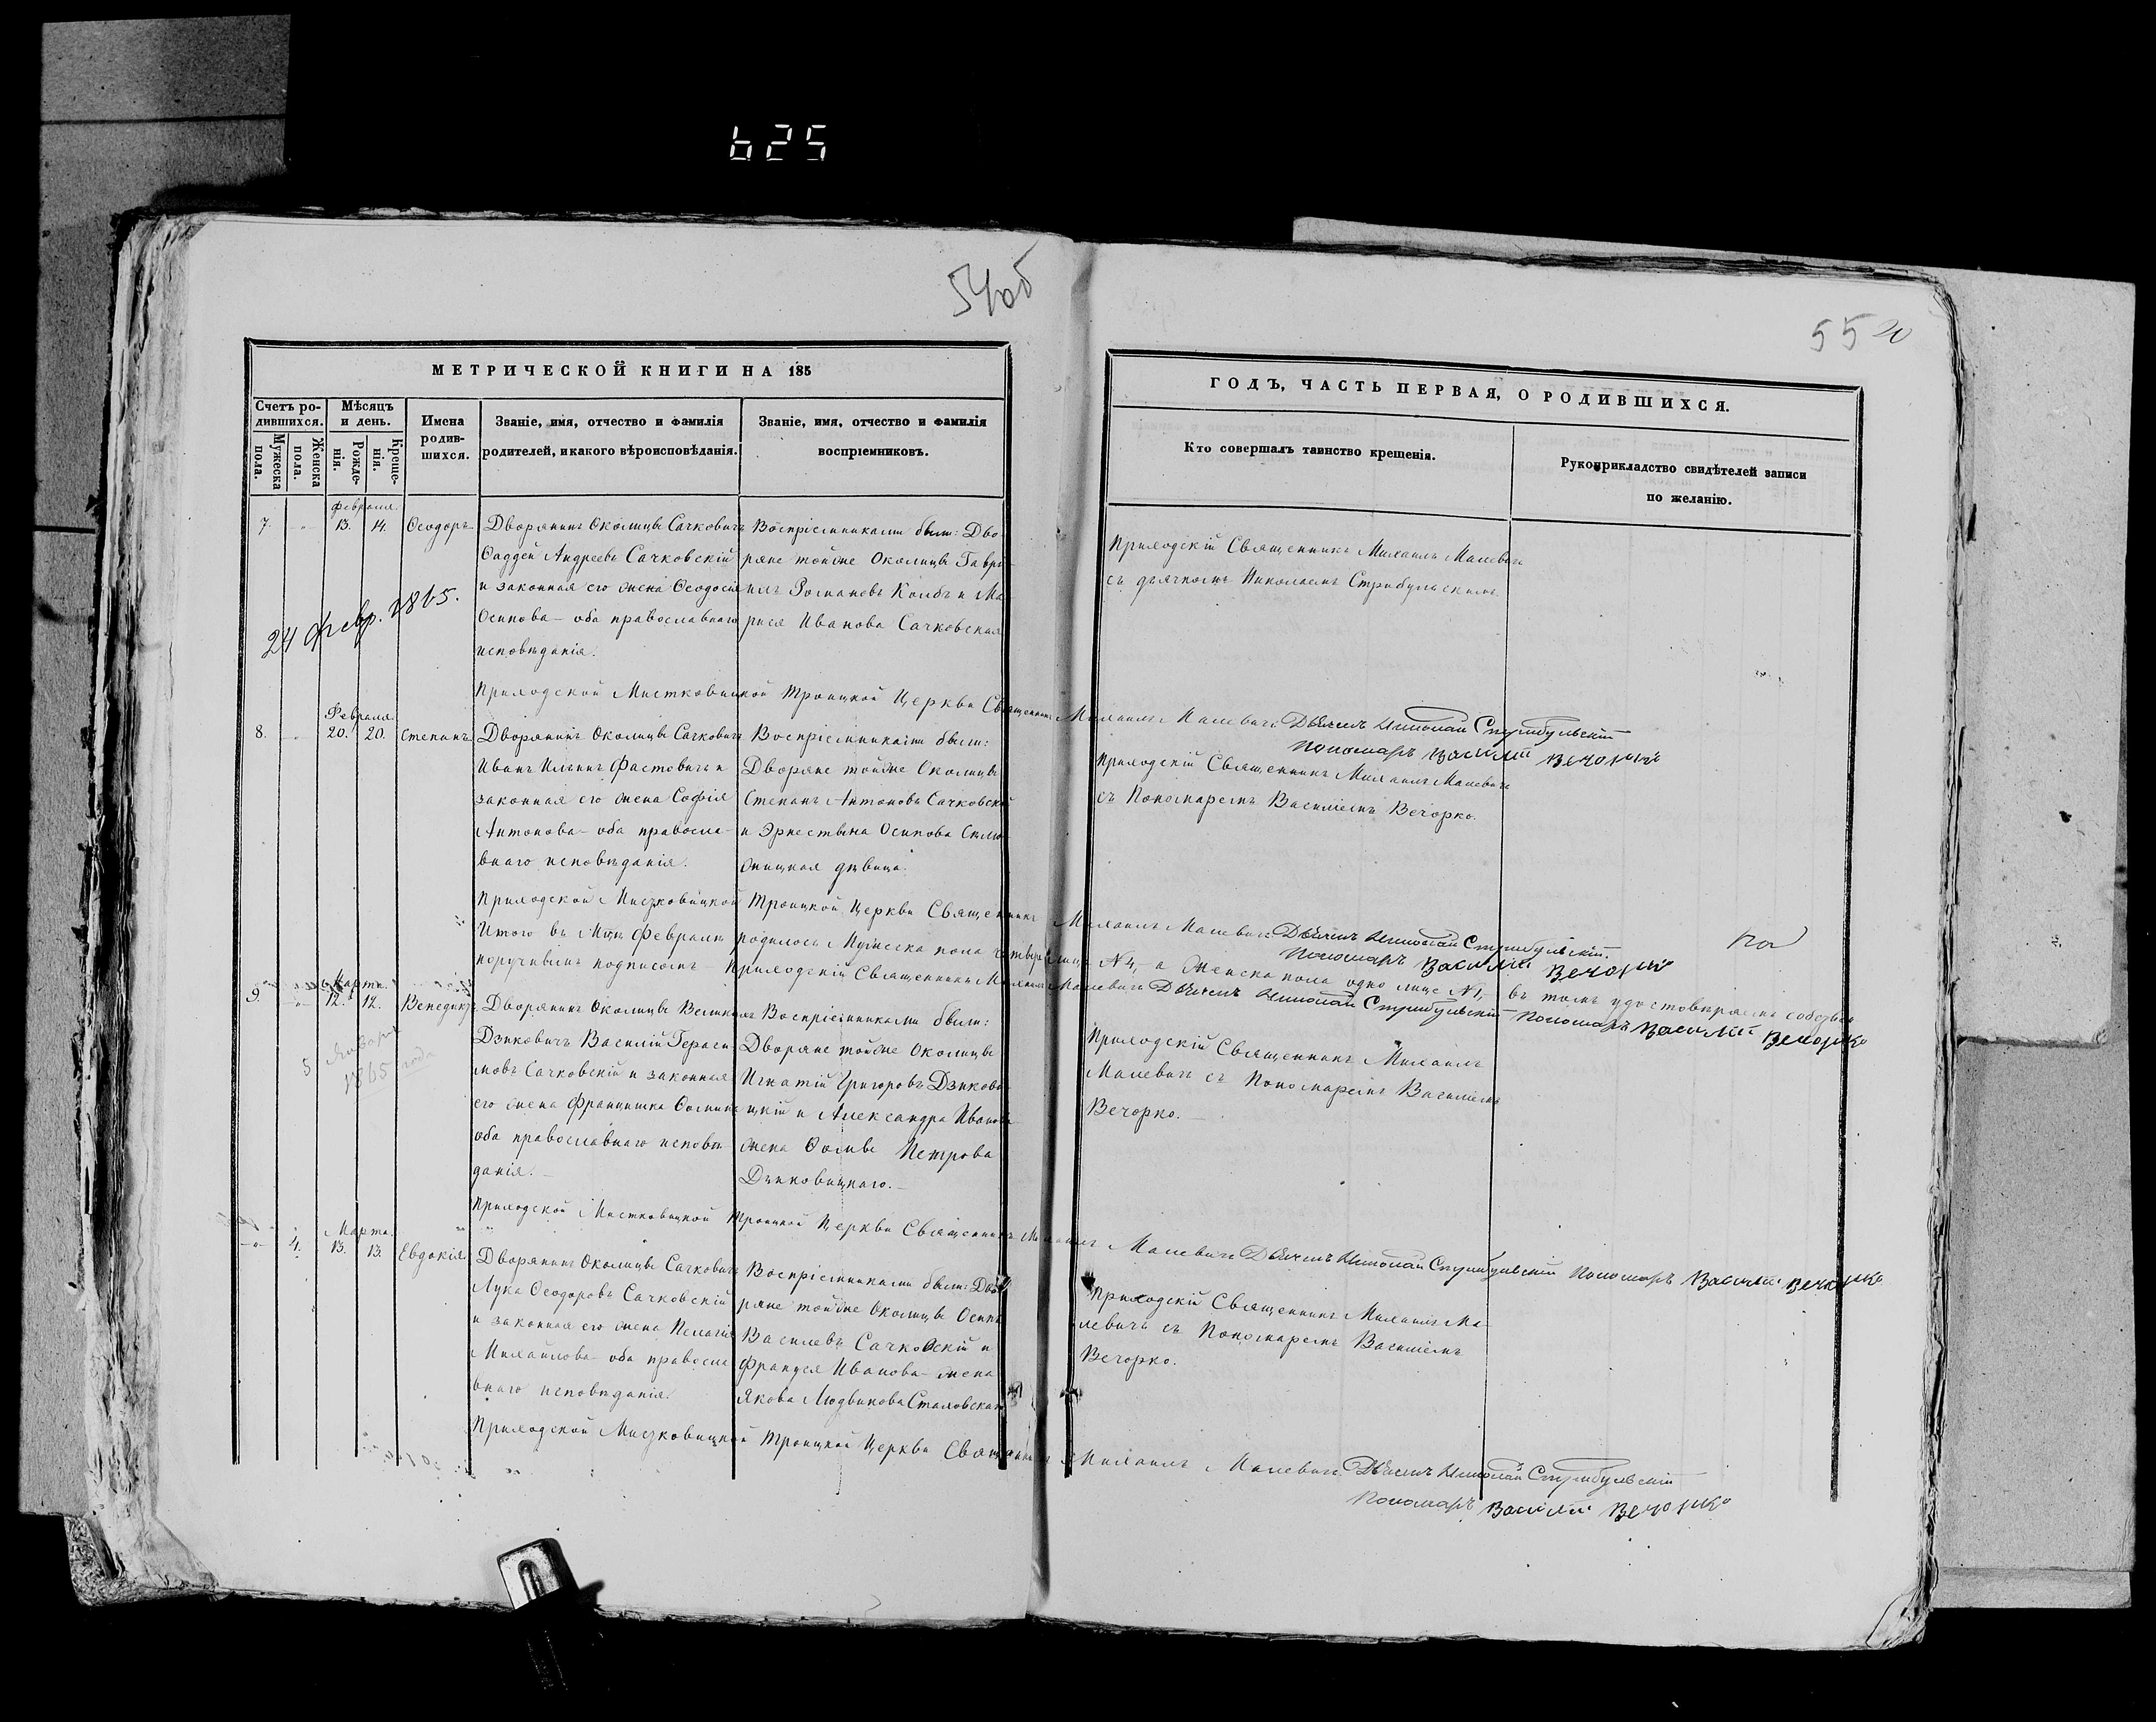 625
54об
55 20
МЕТРИЧЕСКОЙ КНИГИ НА 185
Счетъ ро-
дившихся.
Мужеска
пола.
Женска
пола.
Мѣсяцъ
и день.
Рожде-
нія.
Креще-
нія.
Имена
родив-
шихся.
Званіе, имя, отчество и фамилія
родителей, и какого вѣроисповѣданія.
Званіе, имя, отчество и фамилія
воспріемниковъ.
ГОДЪ, ЧАСТЬ ПЕРВАЯ, О РОДИВШИХСЯ.
Кто совершалъ таинство крещенія.
Рукоприкладство свидѣтелей записи
по желанію.
Февраля
7. 13. 14. Ѳеодоръ
Дворянинъ Околицы Сачковичъ
Ѳаддей Андреевъ Сачковскій
и законная его жена Ѳеодосія
Осипова – оба православнаго
исповѣданія.
Воспріемниками были: Дво
ряне тойже Околицы Гаврі
илъ Романовъ Колбъ и Ма
рися Иванова Сачковская
Приходскій Священникъ Михаилъ Малевичъ
съ дьячкомъ Николаемъ Стрибульскимъ.
24 Февр. 1865.
Приходской Мистковицкой Троицкой Церкви Священникъ Михаилъ Малевичъ Дьячекъ Николай Стрибульскій
Пономарь Василій Вечорко
Февраля
8. 20. 20. Степанъ
Дворянинъ Околицы Сачковичъ
Иванъ Ильинъ Фастовичъ и
законная его жена Софія
Антонова – оба правосла-
внаго исповѣданія.
Воспріемниками были:
Дворяне тойже Околицы
Степанъ Антоновъ Сачковскій
и Эрнестына Осипова
дѣвица.
Приходскій Священникъ Михаилъ Малевичъ
съ Пономаремъ Василіемъ Вечорко.
Приходской Мистковицкой Троицкой Церкви Священникъ Михаилъ Малевичъ Дьячекъ Николай Стрибульскій.
Пономарь Василій Вечорко
Итого въ Мцѣ Февралѣ родилось Мужеска пола четыре лица № 4, а Женска пола одно лице № 1, въ томъ удостовѣряемъ собствен
норучнымъ подписомъ – Приходскій Священникъ Михаилъ Малевичъ Дьячекъ Николай Стрибульскій Пономарь Василій Вечорко
Марта
9. 12. 12. Венедиктъ
Дворянинъ Околицы Великихъ
Дзиковичъ Василій Гераси
мовъ Сачковскій и законная
его жена Францишка Ѳомина
оба православнаго исповѣ
данія. –
Воспріемниками были:
Дворяне тойже Околицы
Игнатій Григоровъ Дзикови
цкій и Александра Иванова
жена Ѳомы Петрова
Дзиковицкаго. –
Приходскій Священникъ Михаилъ
Малевичъ съ Пономаремъ Василіемъ
Вечорко. –
5 Января
1865 года
Приходской Мистковицкой Троицкой Церкви Священникъ Михаилъ Малевичъ Дьячекъ Николай Стрибульскій Пономарь Василій Вечорко
Марта
4. 13. 13. Евдокія
Дворянинъ Околицы Сачковичъ
Лука Ѳеодоровъ Сачковскій
и законная его жена Пелагія
Михайлова – оба правосла
внаго исповѣданія.
Воспріемниками были: Дво
ряне тойже Околицы Осипъ
Василевъ Сачковскій и
Францея Иванова – жена
Якова Людвикова
Приходскій Священникъ Михаилъ Ма-
левичъ съ Пономаремъ Василіемъ
Вечорко.
Приходской Мистковицкой Троицкой Церкви Священникъ Михаилъ Малевичъ Дьячекъ Николай Стрибульскій
Пономарь Василій Вечорко